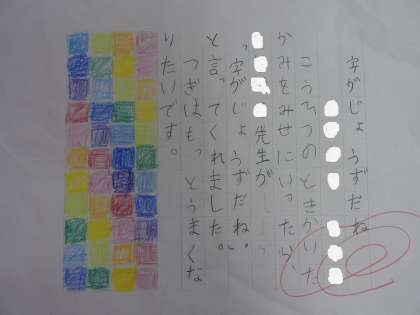 字がじょうずだね
こうひつのときかいた
かみをみせにいったら、
先生が
「字がじょうずだね。」
と言ってくれました。
つぎはもっとうまくな
りたいです。